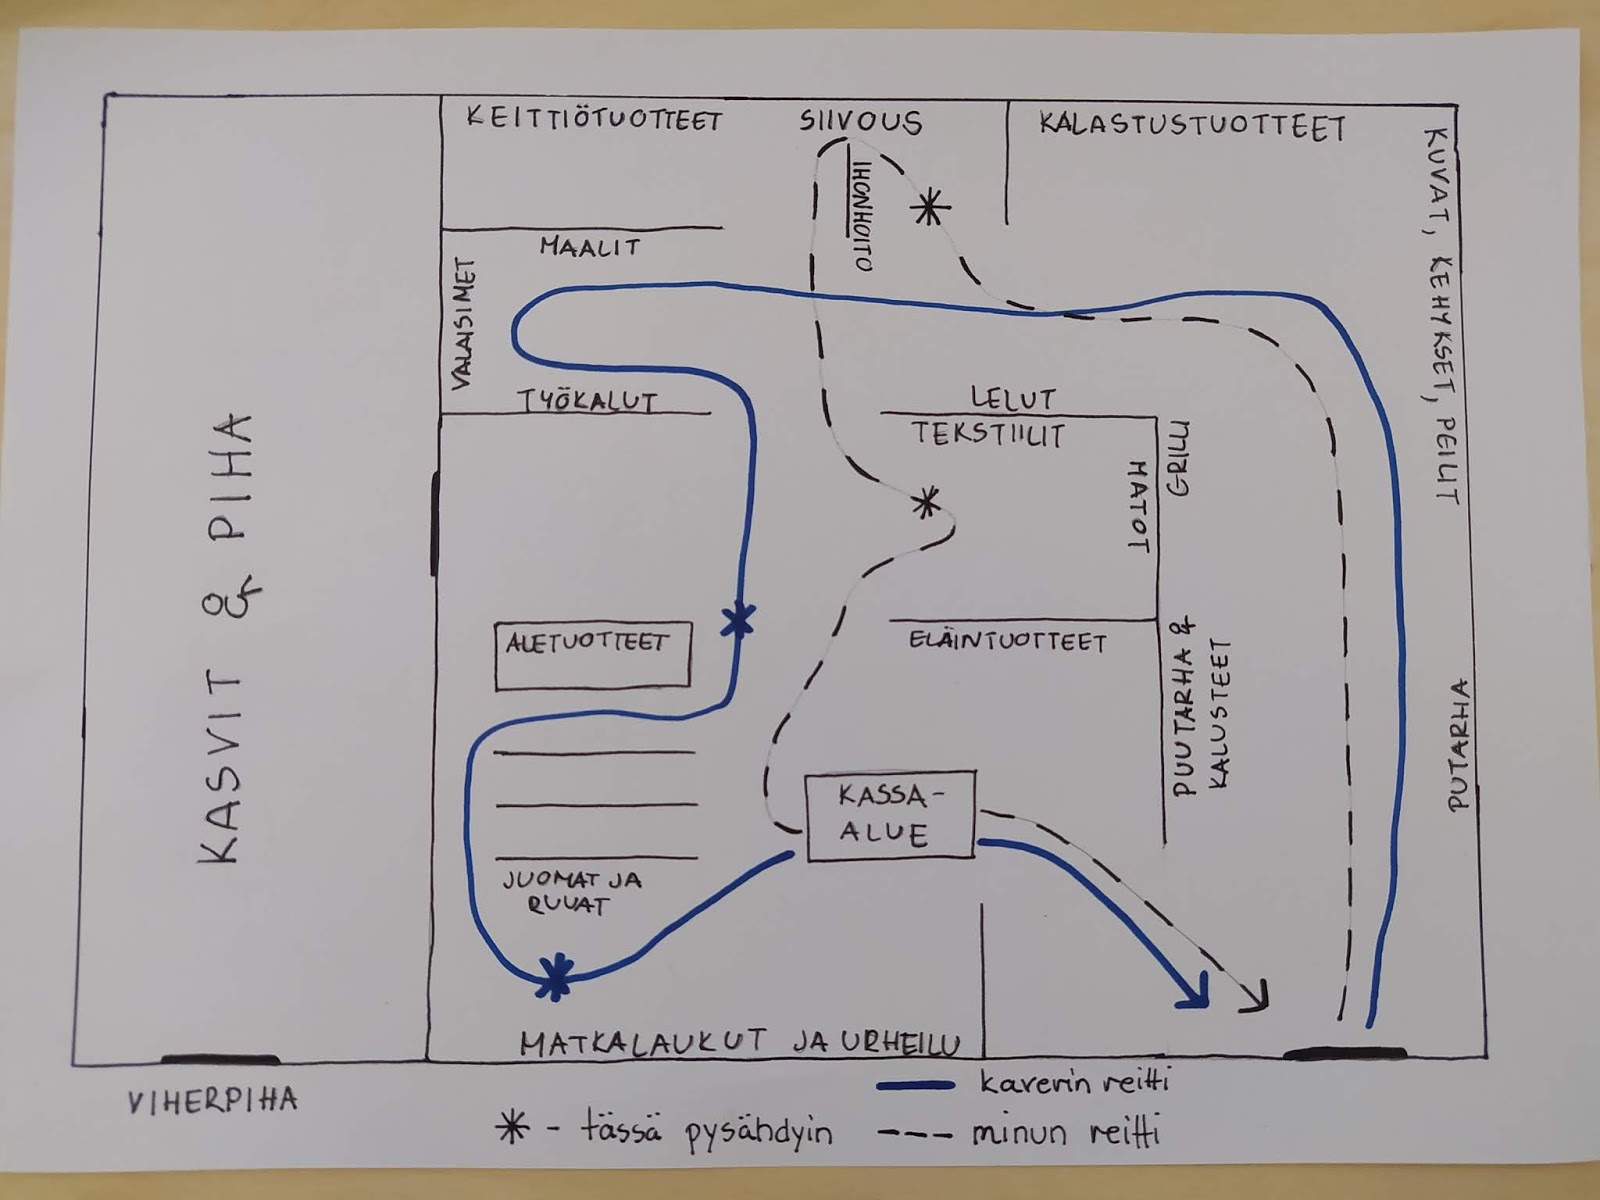 KEITTIÖTUOTTEET
SIIVOUS
KALASTUSTUOTTEET
KUVAT, KEHYKSET, PEILIT
IHONHOITO
MAALIT
VALAISIMET
TYÖKALUT
LELUT
TEKSTIILIT
MATOT
GRILLI
KASVIT & PIHA
ALETUOTTEET
ELÄINTUOTTEET
PUUTARHA &
KALUSTEET
PUTARHA
KASSA-
ALUE
JUOMAT JA
RUUAT
MATKALAUKUT JA URHEILU
VIHERPIHA
kaverin reitti
* - tässä pysähdyin
--- minun reitti